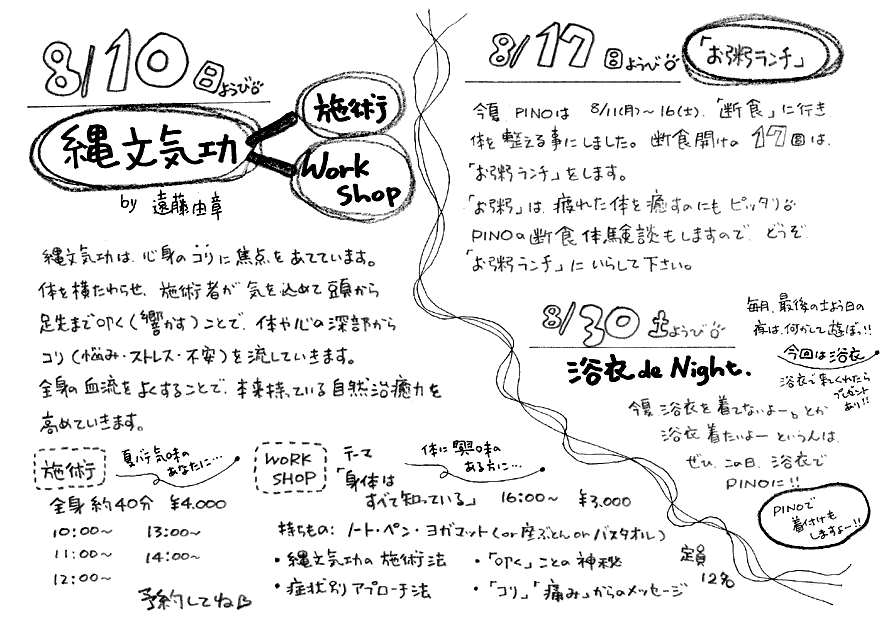 8/10 日ようび
縄文気功
施術
Work Shop
by 遠藤由章
縄文気功は、心身のコリに焦点をあてています。
体を横たわらせ、施術者が気を込めて頭から
足先まで叩く(響かす)ことで、体や心の深部から
コリ(悩み・ストレス・不安)を流していきます。
全身の血流をよくすることで、本来持っている自然治癒力を
高めていきます。
施術
夏バテ気味の
あなたに…
全身 約40分 ¥4.000
10:00~ 13:00~
11:00~ 14:00~
12:00~
予約してね
WORK SHOP
体に興味の
ある方に…
テーマ
「身体は
すべて知っている」 16:00~ ¥3,000
持ちもの: ノート・ペン・ヨガマット(or 座ぶとん or バスタオル)
・縄文気功の施術法 ・「叩く」ことの神秘
・症状別アプローチ法 ・「コリ」「痛み」からのメッセージ
定員
12名
8/17 日ようび
「お粥ランチ」
今夏 PINOは 8/11(月)~16(土)、「断食」に行き
体を整える事にしました。断食開けの 17日は、
「お粥ランチ」をします。
「お粥」は、疲れた体を癒すのにもピッタリ
PINOの断食体験談もしますので、どうぞ
「お粥ランチ」にいらして下さい。
8/30 土ようび
浴衣 de Night.
毎月、最後の土よう日の
夜は、何かして遊ぼっ!!
今回は浴衣
浴衣で来てくれたら
プレゼント
あり!!
今夏 浴衣を着てないよー。とか
浴衣着たいよー というんは、
ぜひ、この日、浴衣で
PINOに!!
PINOで
着付けも
しますよー!!